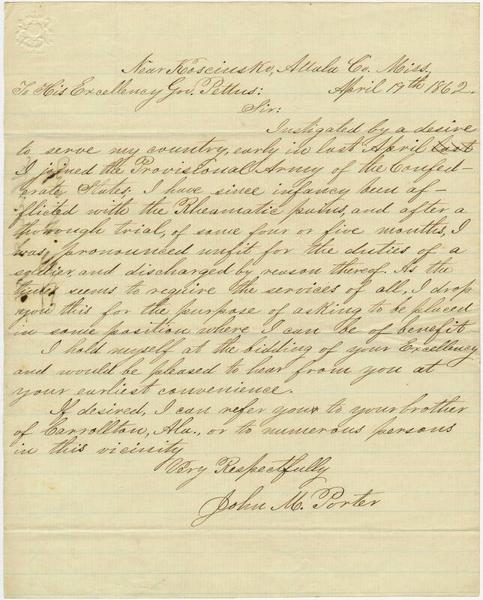 Near Kosciusko, Attala Co. Miss,
To His Excellency Gov. Pettus: April 19th 1862.
Sir:
Instigated by a desire
to serve my country, early in last April last
I joined the Provisional Army of the Confed-
erate States. I have since infancy been af-
flicted with the Rheamatic pains, and after a
thorough trial, of some four or five months, I
was pronounced unfit for the duties of a
soldier and discharged by reason thereof. As the
times seems to require the services of all, I drop
you this for the purpose of asking to be placed
in some position where I can be of benefit
I hold myself at the bidding of your Excellency
and would be pleased to hear from you at
your earliest convenience.
If desired, I can refer you to your brother
of Carrollton, Ala., or to numerous persons
in this vicinity
Very Respectfully
John M. Porter